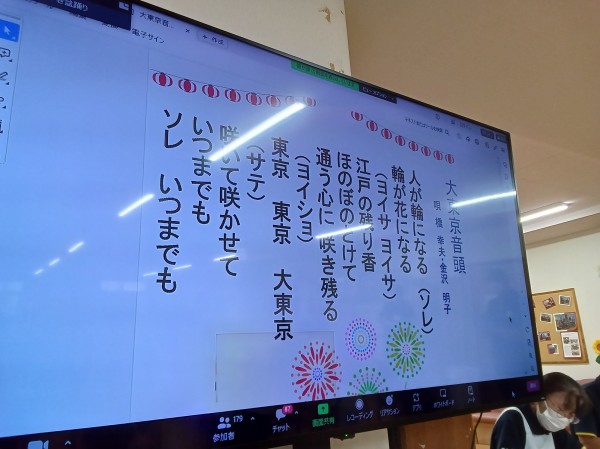 盆踊り
大東京音
作成
電子サイン
大東京音頭
唄 橋 幸夫・金沢 明子
人が輪になる (ソレ)
輪が花になる
(ヨイサ ヨイサ)
江戸の残り香
ほのぼのとけて
通う心に 咲き残る
(ヨイショ)
東京 東京 大東京
(サテ)
咲いて咲かせて
いつまでも
ソレ いつまでも
179
参加者
87
チャット
画面共有
レコーディング
リアクション
アプリ
ホワイトボード
ノート